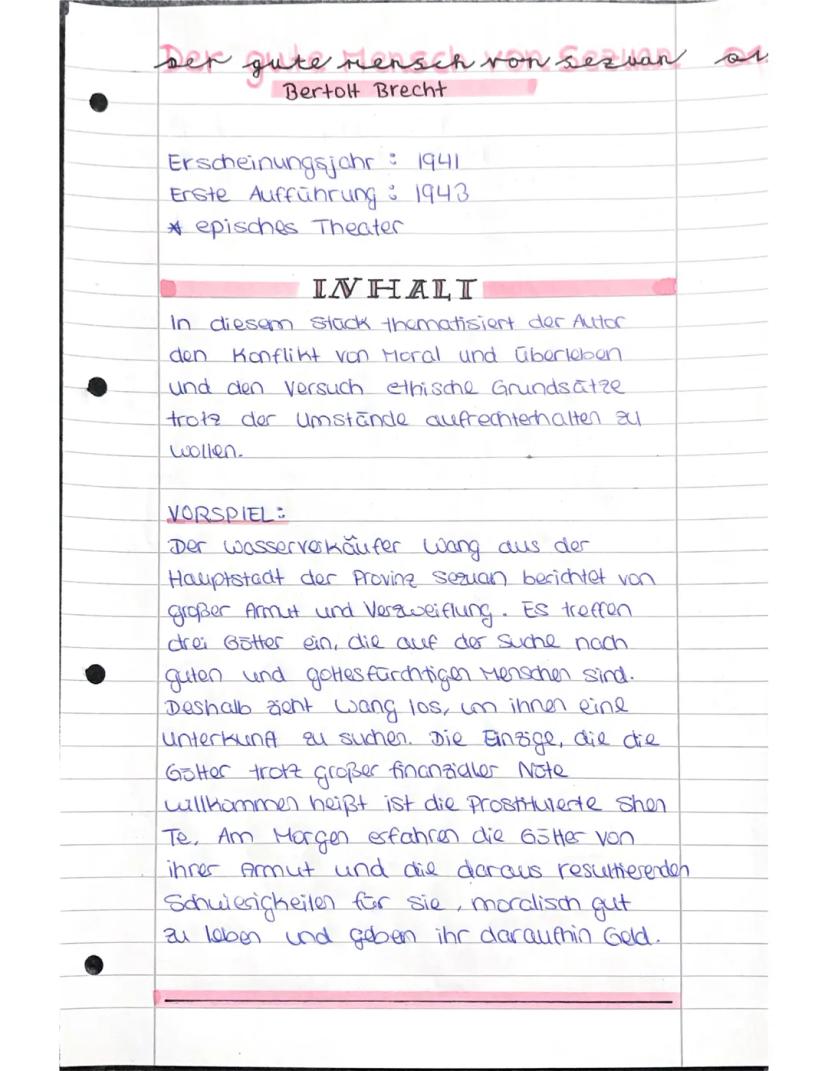 Der gute Mensch von Sezuan 01
Bertolt Brecht
Erscheinungsjahr : 1941
Erste Aufführung : 1943
* episches Theater
INHALT
In diesem Stück thematisiert der Autor
den Konflikt von Moral und Überleben
und den Versuch ethische Grundsätze
trotz der Umstände aufrechterhalten zu
wollen.
VORSPIEL:
Der Wasserverkäufer Wang aus der
Hauptstadt der Provinz Sezuan berichtet von
großer Armut und Verzweiflung. Es treffen
drei Götter ein, die auf der Suche nach
guten und gottesfürchtigen Menschen sind.
Deshalb zieht Wang los, um ihnen eine
Unterkunft zu suchen. Die Einzige, die die
Götter trotz großer finanzieller Nöte
willkommen heißt ist die Prostituierte Shen
Te. Am Morgen erfahren die Götter von
ihrer Armut und die daraus resultierenden
Schwierigkeiten für sie, moralisch gut
zu leben und geben ihr daraufhin Geld.